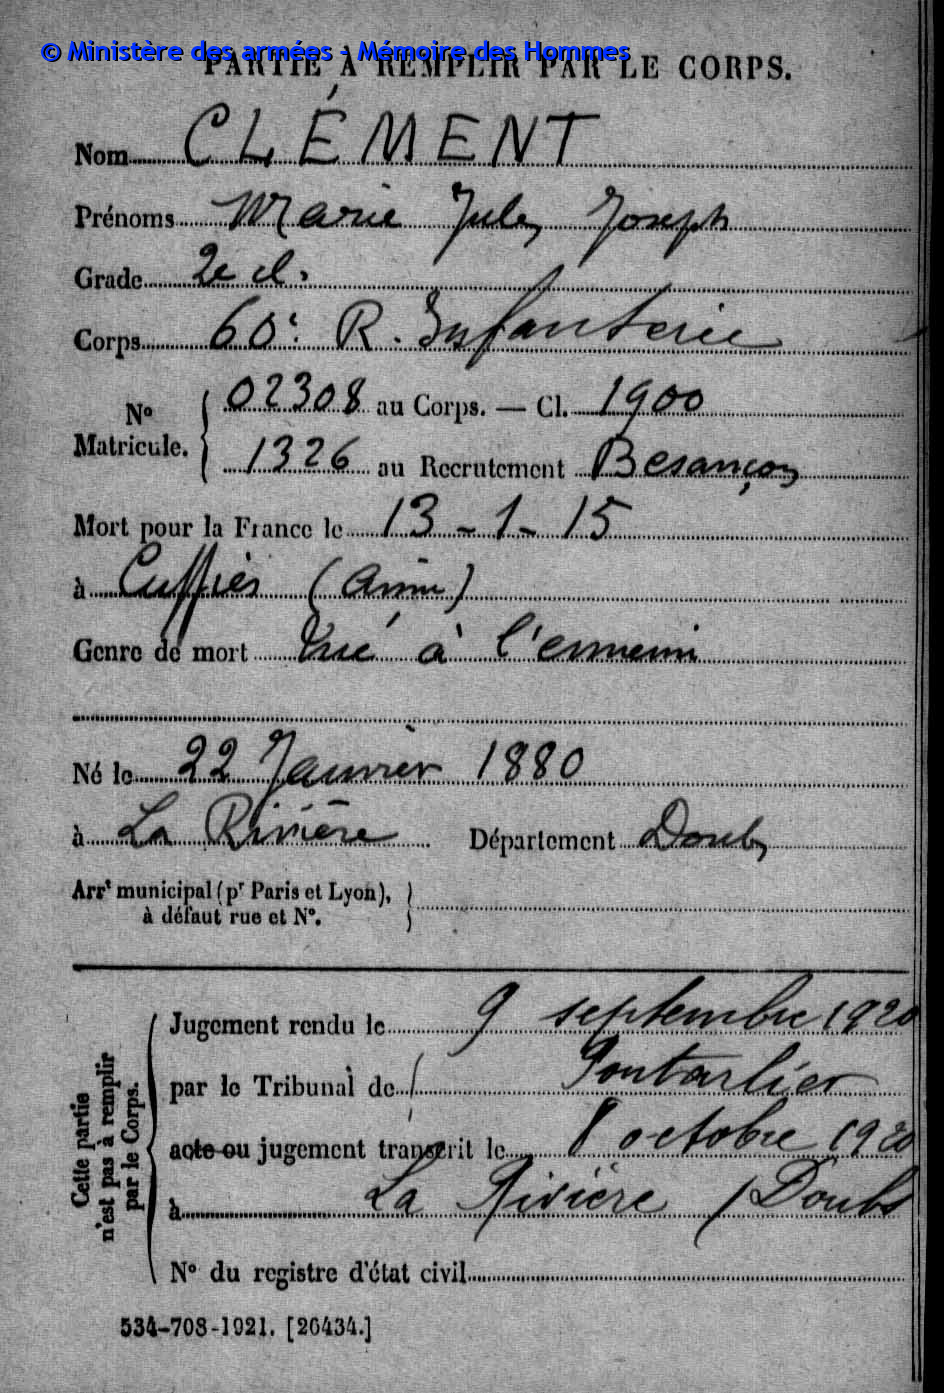 © Ministère des armées - Mémoire des Hommes
PARTIE À REMPLIR PAR LE CORPS.
Nom CLÉMENT
Prénoms Marie Jules Joseph
Grade 2e cl.
Corps 60e R. Infanterie
No Matricule. 02308 au Corps. — Cl. 1900
1326 au Recrutement Besançon
Mort pour la France le 13-1-15
à Cuffiès (Aisne)
Genre de mort Tué à l'ennemi
Né le 22 Janvier 1880
à La Rivière Département Doubs
Arrt municipal (pr Paris et Lyon),
à défaut rue et No.
Cette partie n'est pas à remplir par le Corps.
Jugement rendu le 9 septembre 1920
par le Tribunal de Pontarlier
acte ou jugement transcrit le 8 octobre 1920
à La Rivière (Doubs
No du registre d'état civil
534-708-1921. [26434.]